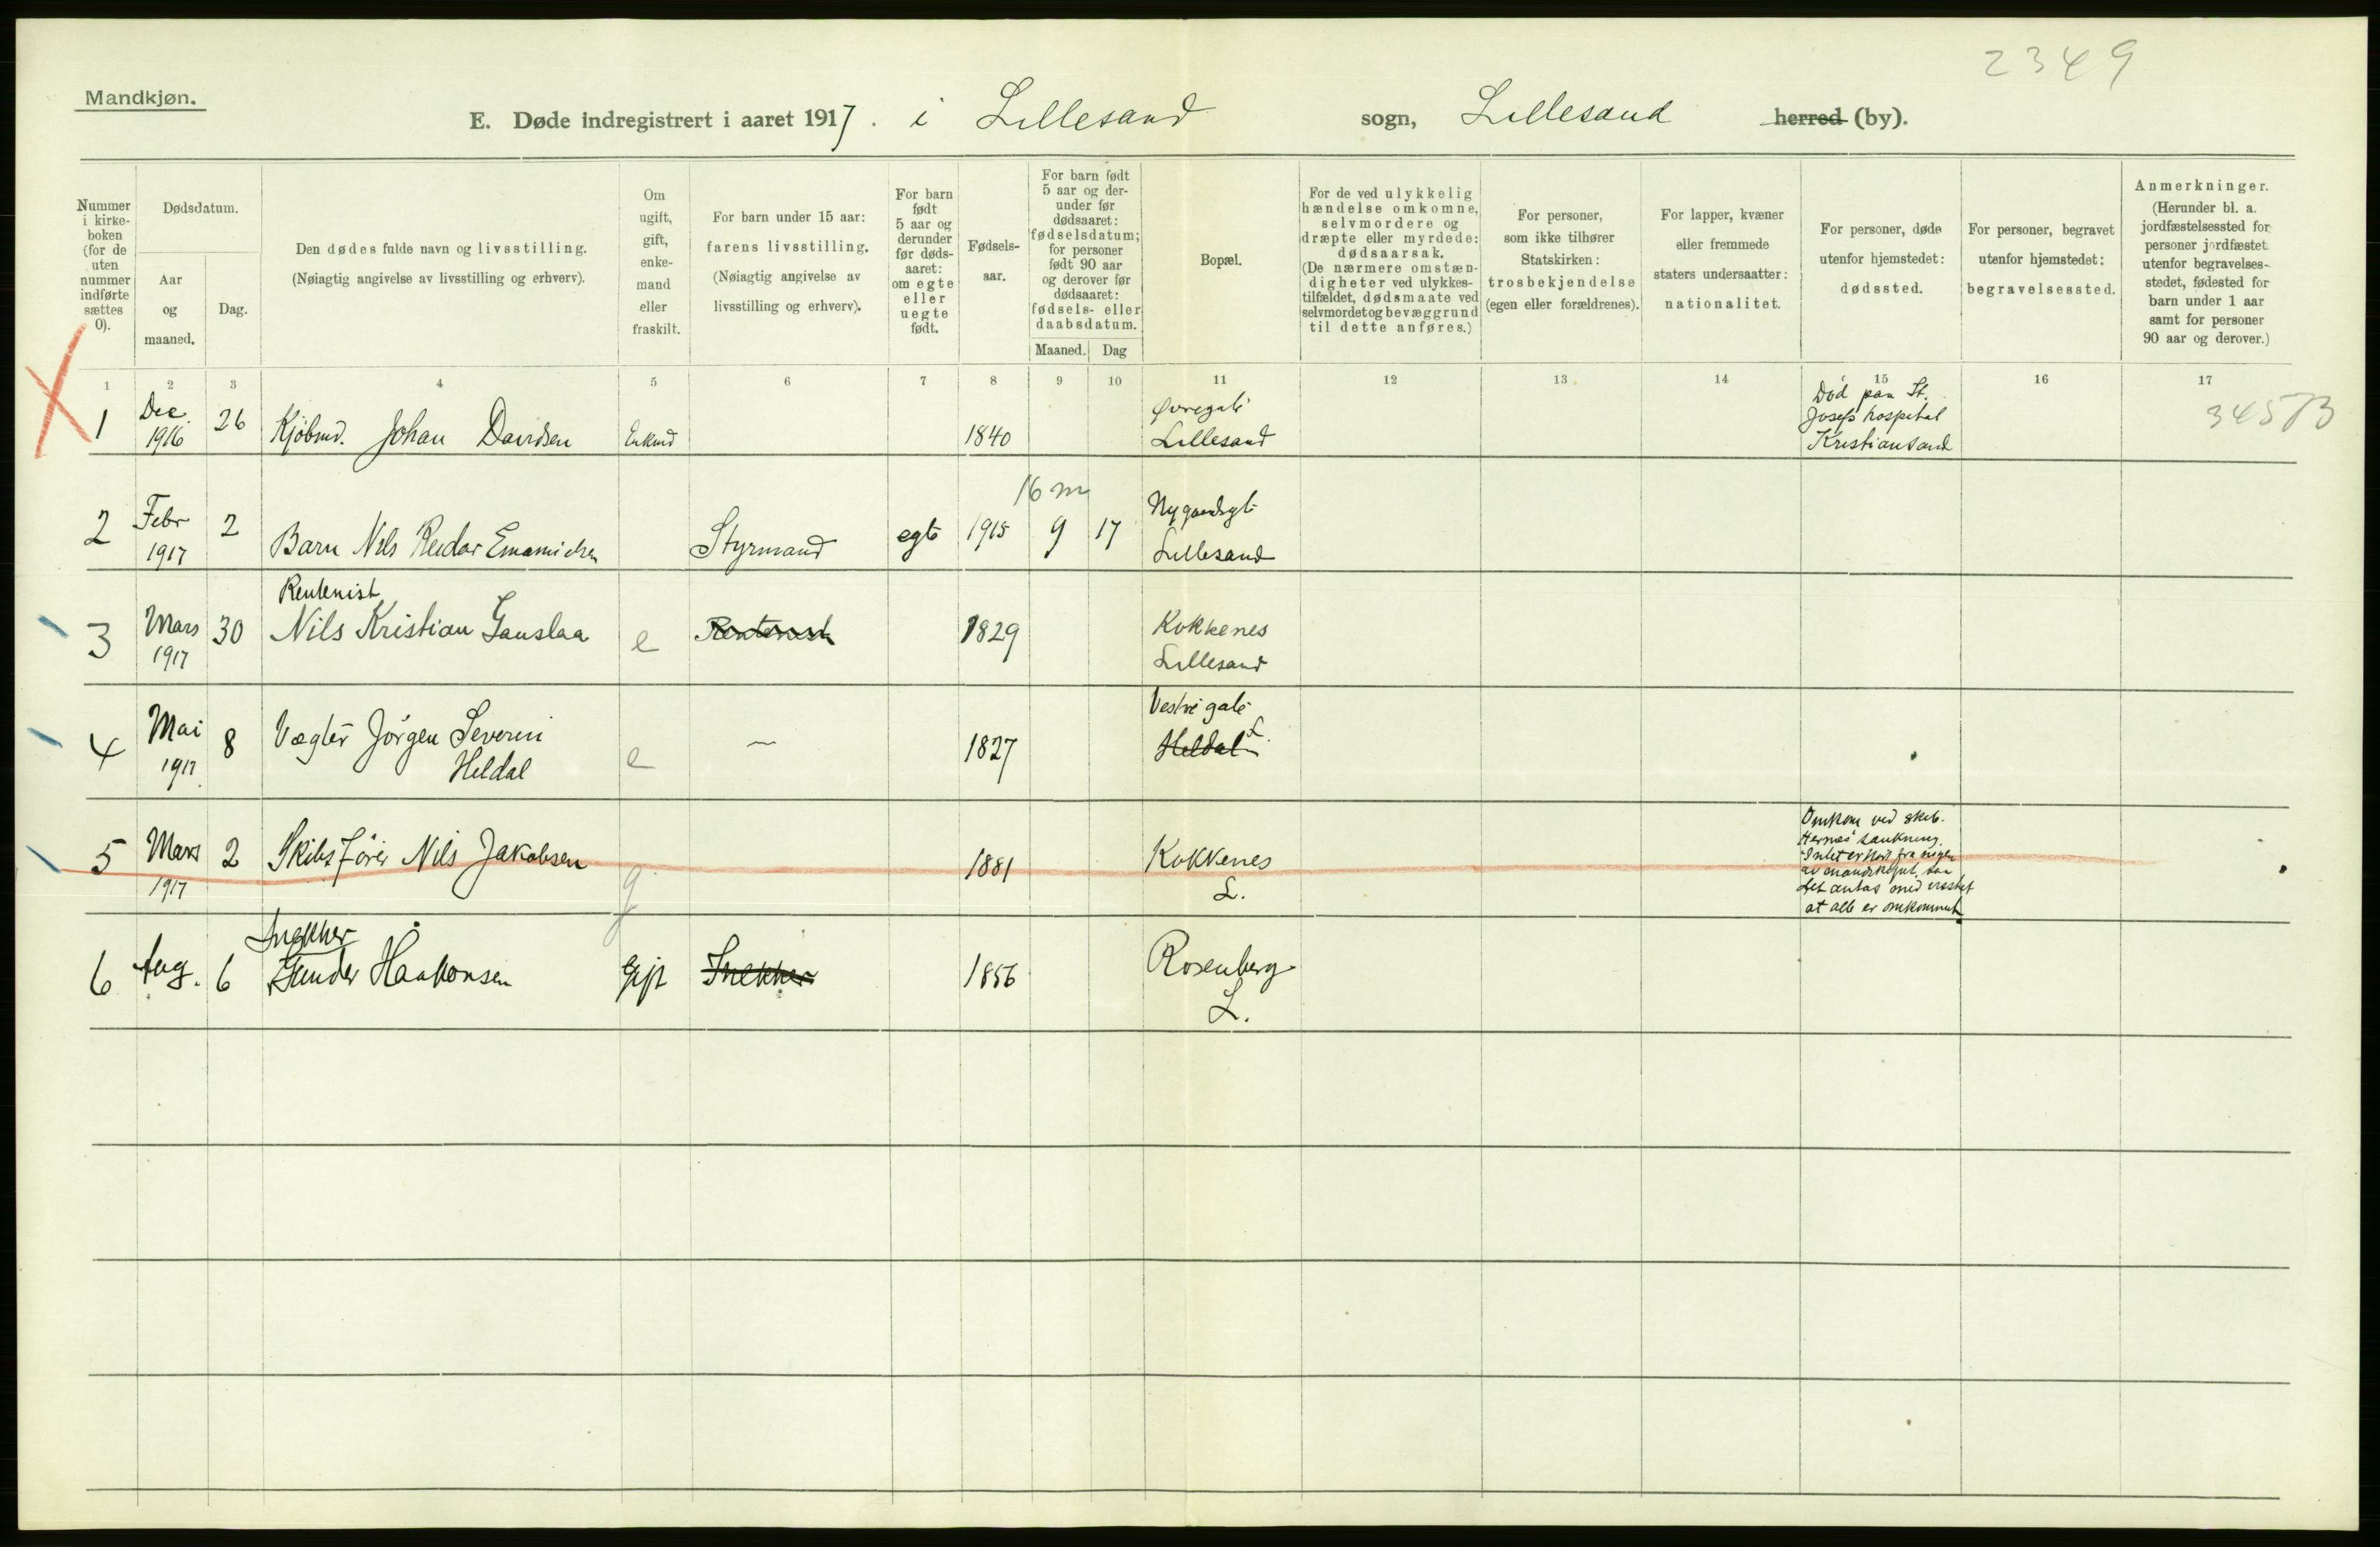 2349
Mandkjøn.
E. Døde indregistrert i aaret 1917. i Lillesand sogn, Lillesand herred (by).
Nummer i kirke-boken (for de uten nummer indførte sættes 0).
Dødsdatum.
Aar og maaned.
Dag.
Den dødes fulde navn og livsstilling.
(Nøiagtig angivelse av livsstilling og erhverv).
Om ugift, gift, enke-mand eller fraskilt.
For barn under 15 aar: farens livsstilling.
(Nøiagtig angivelse av livsstilling og erhverv).
For barn født 5 aar og derunder før døds-aaret: om egte eller uegte født.
Fødsels-aar.
For barn født 5 aar og der-under før dødsaaret: fødselsdatum; for personer født 90 aar og derover før dødsaaret: fødsels- eller daabsdatum.
Maaned. Dag
Bopæl.
For de ved ulykkelig hændelse omkomne, selvmordere og dræpte eller myrdede: dødsaarsak.
(De nærmere omstæn-digheter ved ulykkes-tilfældet, dødsmaate ved selvmordet og bevæggrund til dette anføres.)
For personer, som ikke tilhører Statskirken: trosbekjendelse (egen eller forældrenes).
For lapper, kvæner eller fremmede staters undersaatter: nationalitet.
For personer, døde utenfor hjemstedet: dødssted.
For personer, begravet utenfor hjemstedet: begravelsessted.
Anmerkninger.
(Herunder bl. a. jordfæstelsessted for personer jordfæstet utenfor begravelses-stedet, fødested for barn under 1 aar samt for personer 90 aar og derover.)
1 2 3 4 5 6 7 8 9 10 11 12 13 14 15 16 17
1 Dec. 1916 26 Kjøbmd. Johan Davidsen Enkmd 1840 Øvregate Lillesand Död paa St. Josefs hospital Kristiansand 34573
16 m
2 Febr 1917 2 Barn Nils Reidar Styrmand egte 1915 9 17 Lillesand
Rentenist
3 Mars 1917 30 Nils Kristian Gauslaa e Rentenist 1829 Kokkenes Lillesand
4 Mai 1917. 8 Vægter Jörgen Severin Heldal e — 1827 Vestre gate Heldal L.
5 Mars 1917 2 Skibsförer Nils Jakobsen g 1881 Kokkenes L. Omkom ved skib. Hernæs sænkning. Intet er hört fra nogen av mandskapet, saa det antas med visshet at alle er omkommet
Snekker
6 Aug. 6 Gunder Haakonsen Gift Snekker 1856 Rosenberg L.